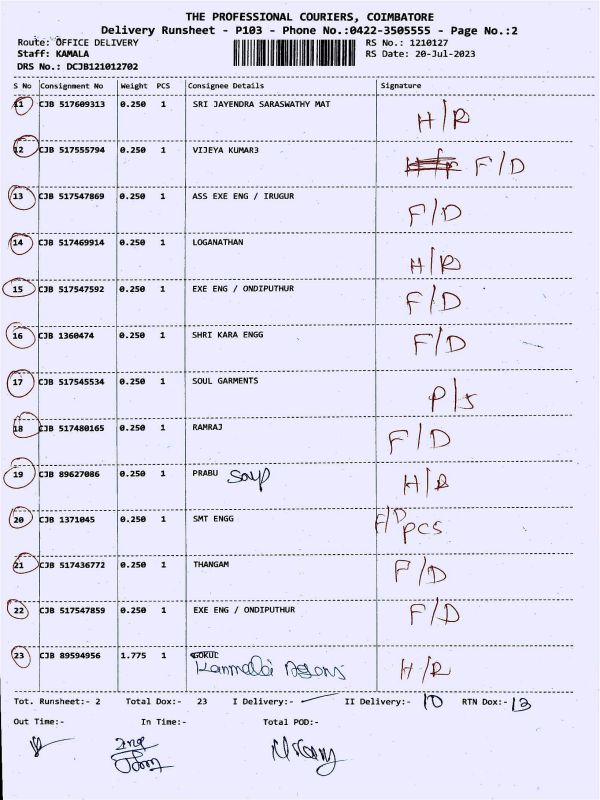 THE PROFESSIONAL COURIERS, COIMBATORE
Delivery Runsheet - P103 - Phone No.:0422-3505555 - Page No.:2
Route: OFFICE DELIVERY RS No.: 1210127
Staff: KAMALA RS Date: 20-Jul-2023
DRS No.: DCJB121012702
S No Consignment No Weight PCS Consignee Details Signature
11 CJB 517609313 0.250 1 SRI JAYENDRA SARASWATHY MAT H/R
12 CJB 517555794 0.250 1 VIJEYA KUMAR3 F/D
13 CJB 517547869 0.250 1 ASS EXE ENG / IRUGUR F/D
14 CJB 517469914 0.250 1 LOGANATHAN H/R
15 CJB 517547592 0.250 1 EXE ENG / ONDIPUTHUR F/D
16 CJB 1360474 0.250 1 SHRI KARA ENGG F/D
17 CJB 517545534 0.250 1 SOUL GARMENTS P/s
18 CJB 517480165 0.250 1 RAMRAJ F/D
19 CJB 89627086 0.250 1 PRABU H/R
20 CJB 1371045 0.250 1 SMT ENGG F/D PCS
21 CJB 517436772 0.250 1 THANGAM F/D
22 CJB 517547859 0.250 1 EXE ENG / ONDIPUTHUR F/D
23 CJB 89594956 1.775 1 GOKUL H/R
Tot. Runsheet:- 2 Total Dox:- 23 I Delivery:- II Delivery:- 10 RTN Dox:- 13
Out Time:- In Time:- Total POD:-